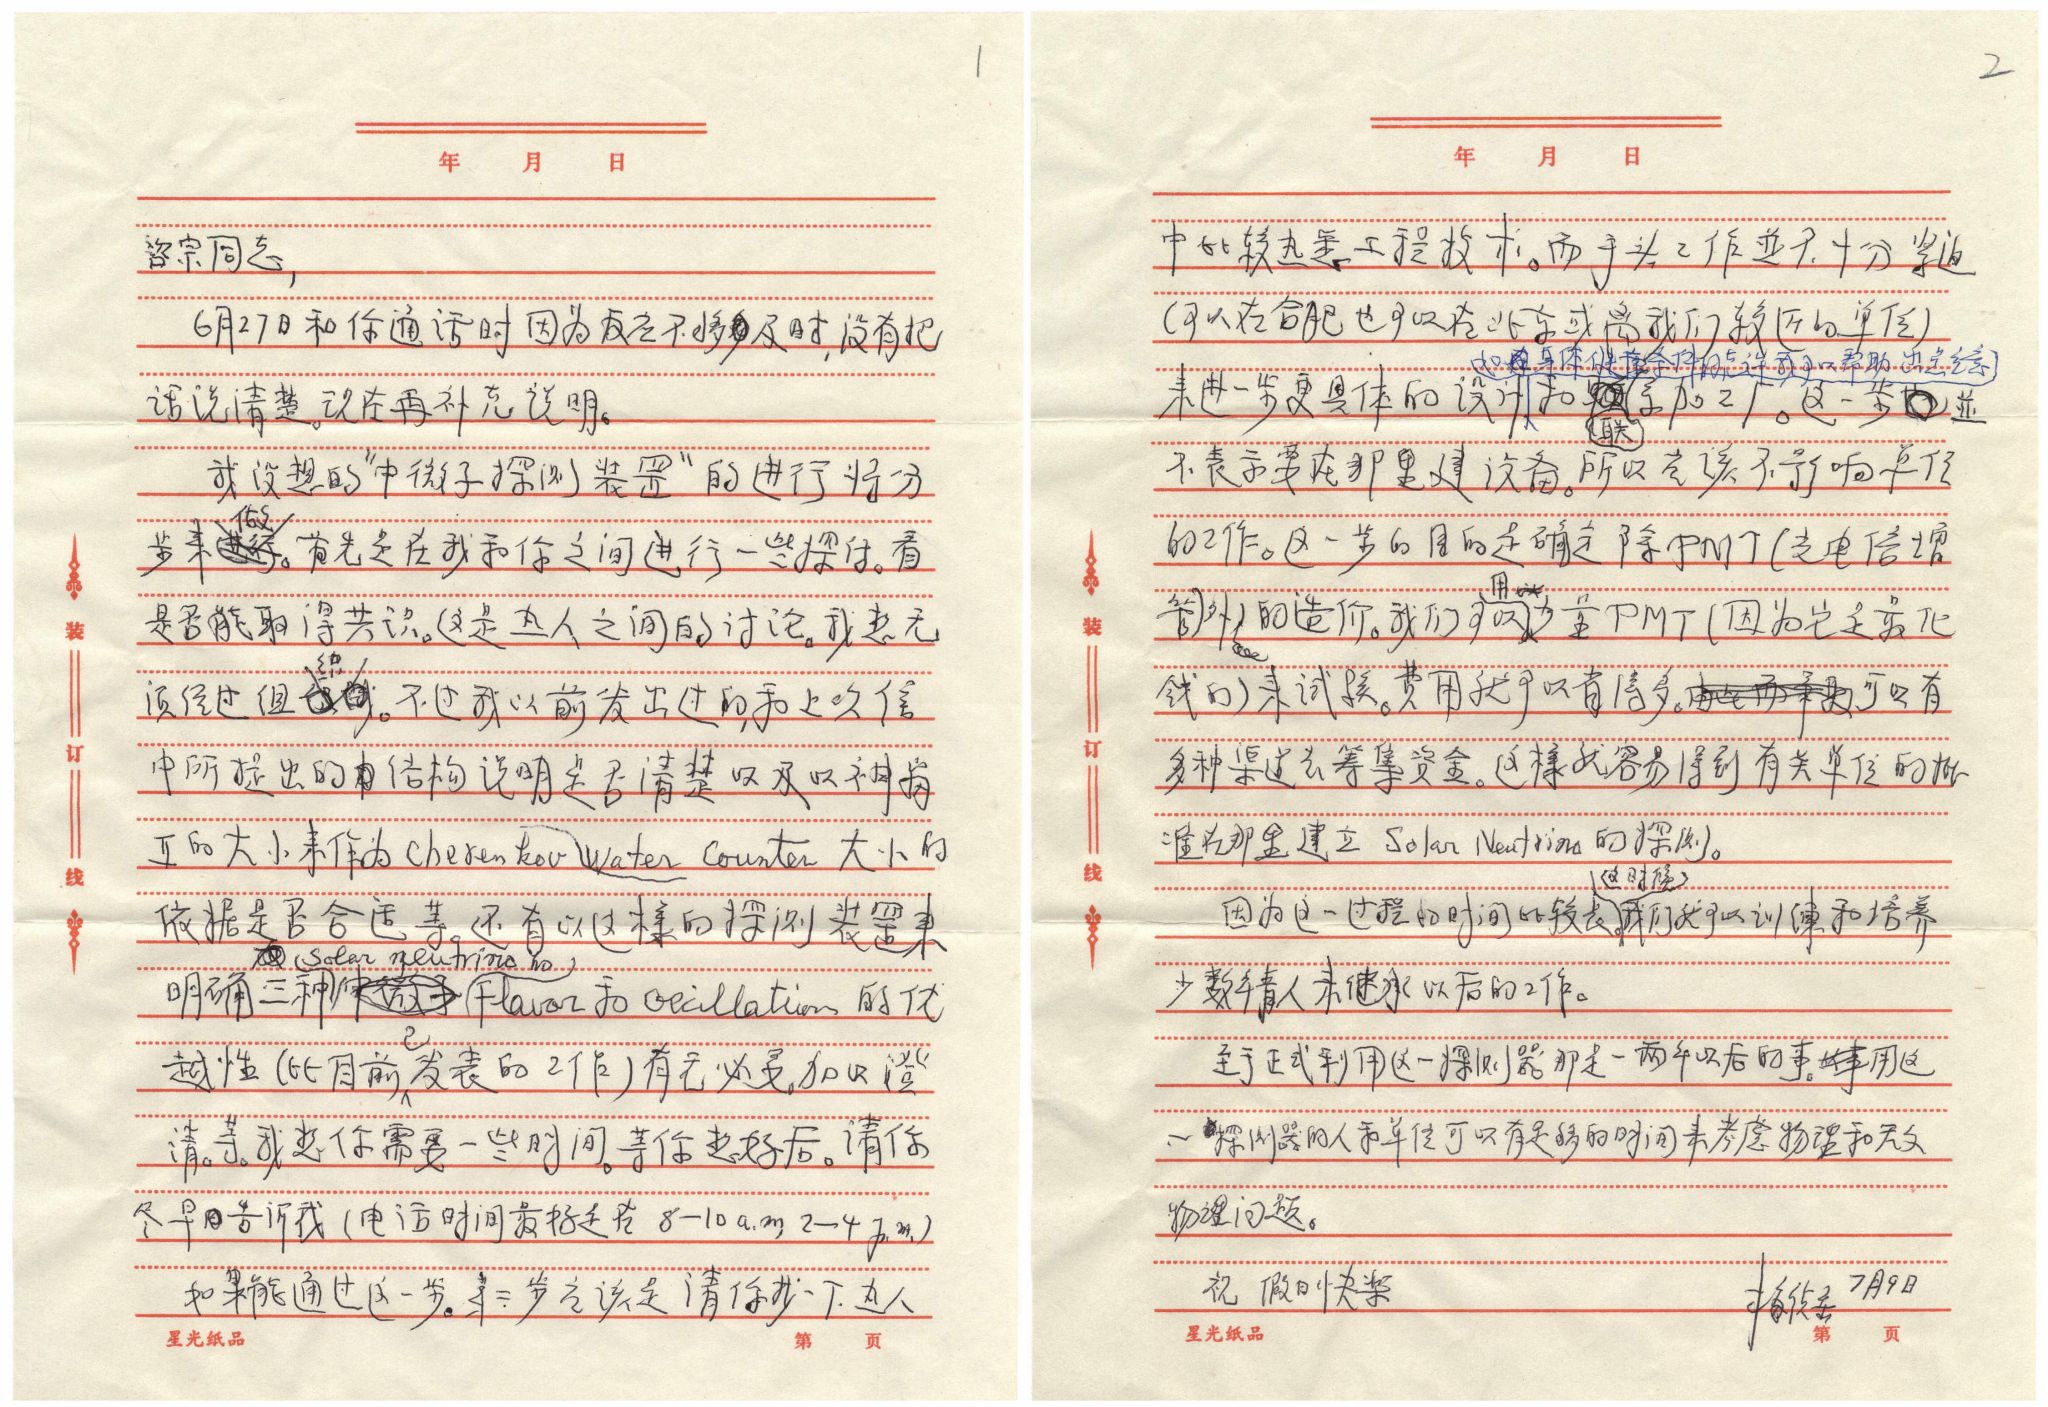 1
年 月 日
咨宗同志,
6月27日和你通话时因为反应不够及时,没有把
话说清楚。现在再补充说明。
我设想的"中微子探测装置"的进行将分
步来做。首先是在我和你之间进行一些探讨。看
是否能取得共识。这是私人之间的讨论。我想无
须经过组织。不过我以前发出过的和上次信
中所提出的结构说明是否清楚以及以神岗
的大小来作为Cherenkov Water Counter大小的
依据是否合适等。还有以这样的探测装置来
明确三种(Solar neutrino的)Flavor和oscillation的优
越性(比目前已发表的工作)有无必要加以澄
清。等。我想你需要一些时间。等你想好后。请你
尽早告诉我(电话时间最好是在8-10 a.m 2-4 p.m.)
如果能通过这一步。第二步应该是请你找一下私人
装订线
星光纸品 第 页
2
年 月 日
中比较熟悉工程技术。而手头工作并不十分紧迫
(可以在合肥也可以在北京或离我们较近的单位)
来进一步更具体的设计和联系加工厂。这一步并
不表示要在那里建设备。所以应该不影响单位
的工作。这一步的目的是确定除PMT(光电倍增
管)外的造价。我们可以用少量PMT(因为它是最化
钱的)来试验。费用就可以省得多。可以有
多种渠道去筹集资金。这样就容易得到有关单位的批
准在那里建立Solar Neutrino的探测。
因为这一过程的时间比较长(这时候)我们就可以训练和培养
少数年青人来继承以后的工作。
至于正式利用这一探测器那是一两年以后的事。用这
一探测器的人和单位可以有足够的时间来考虑物理和天文
物理问题。
祝 假日快乐
7月9日
装订线
星光纸品 第 页